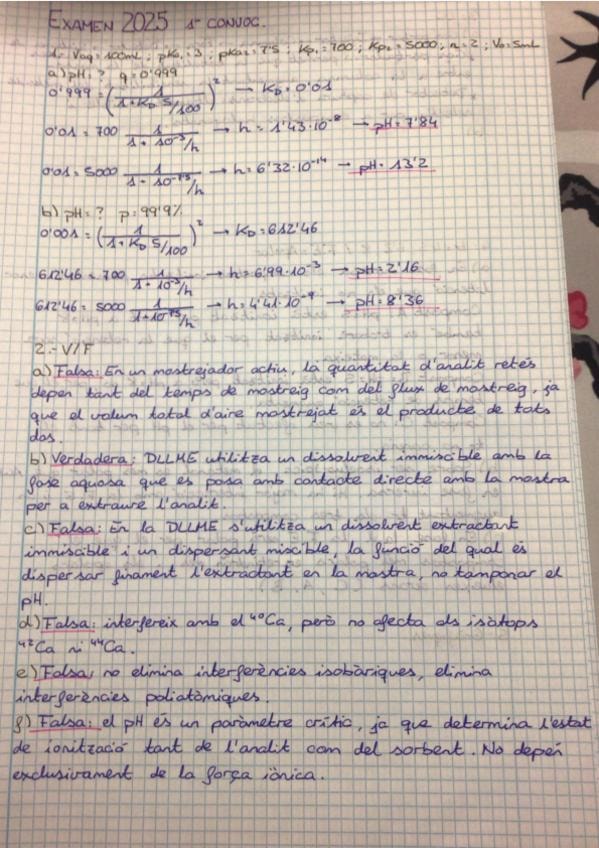 EXAMEN 2025 1ª CONVOC.
1.- Vaq = 100mL ; pKa₁ = 3 ; pKa₂ = 7'5 ; Kp₁ = 700 ; Kp₂ = 5000 ; n = 2 ; Vo = 5mL
a) pH = ? q = 0'999
0'999 = (1 / 1 + KD 5/100)² → KD = 0'01
0'01 = 700 1 / 1 + 10⁻³/h → h = 1'43·10⁻⁸ → pH = 7'84
0'01 = 5000 1 / 1 + 10⁻⁷'⁵/h → h = 6'32·10⁻¹⁴ → pH = 13'2
b) pH = ? p = 99'9%
0'001 = (1 / 1 + KD 5/100)² → KD = 612'46
612'46 = 700 1 / 1 + 10⁻³/h → h = 6'99·10⁻³ → pH = 2'16
612'46 = 5000 1 / 1 + 10⁻⁷'⁵/h → h = 4'41·10⁻⁹ → pH = 8'36
2.- V/F
a) Falsa: En un mostrejador actiu, la quantitat d'analit retés
depen tant del temps de mostreig com del flux de mostreig, ja
que el volum total d'aire mostrejat és el producte de tots
dos.
b) Verdadera: DLLME utilitza un dissolvent immiscible amb la
fase aquosa que es posa amb contacte directe amb la mostra
per a extraure l'analit.
c) Falsa: En la DLLME s'utilitza un dissolvent extractant
immiscible i un dispersant miscible, la funció del qual és
dispersar finament l'extractant en la mostra, no tamponar el
pH.
d) Falsa: interfereix amb el ⁴⁰Ca, però no afecta als isòtops
⁴²Ca ni ⁴⁴Ca.
e) Falsa, no elimina interferències isobàriques, elimina
interferències poliatòmiques.
f) Falsa: el pH és un paràmetre crític, ja que determina l'estat
de ionització tant de l'analit com del sorbent. No depén
exclusivament de la força iònica.